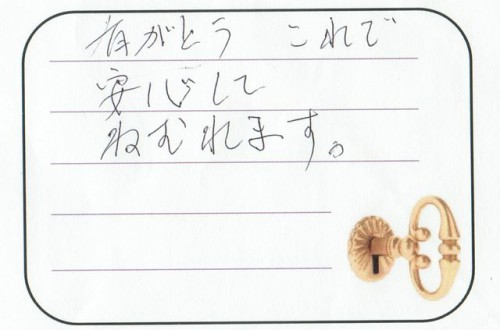 有がとう これで
安心して
ねむれます。